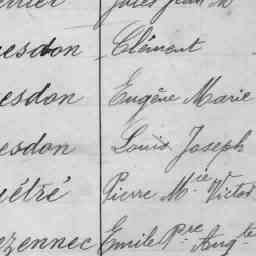 Jules Jean M
esdon Clément
esdon Eugène Marie
esdon Louis Joseph
étré Pierre M.ie Victor
zennec Emile P.re Aug.te